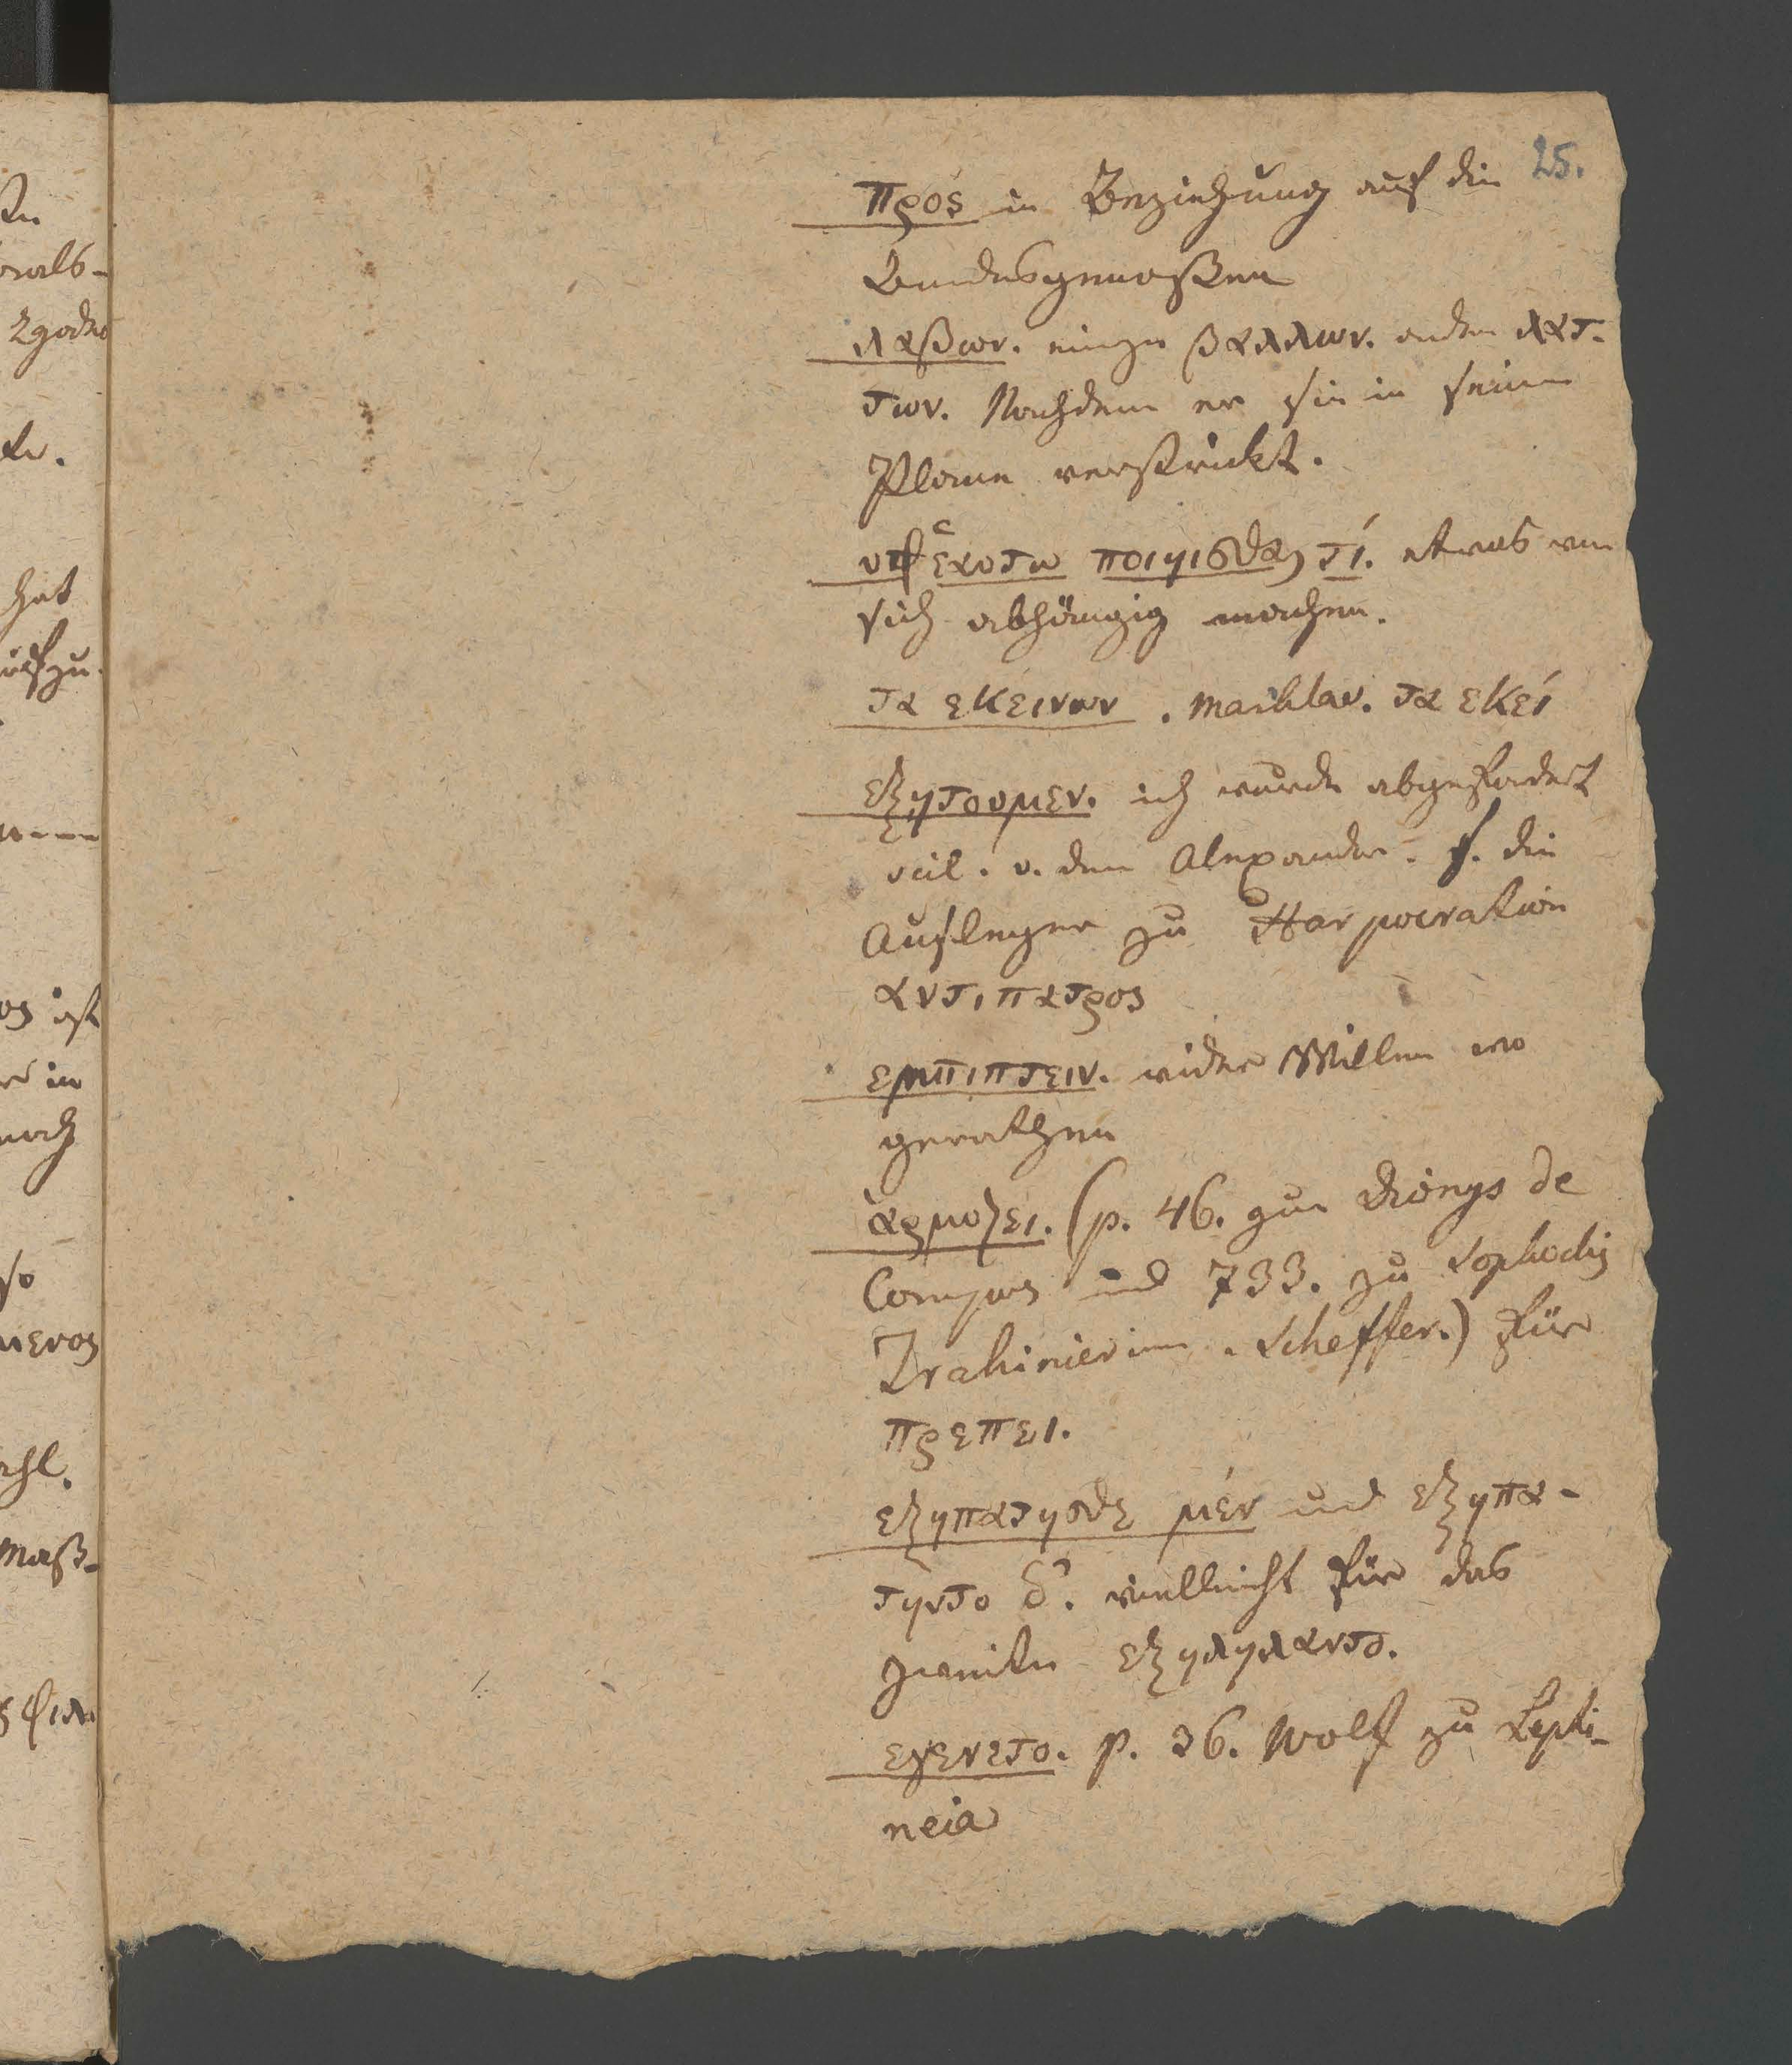 25.
προς in Beziehung auf die
Bundesgenoßen
λαβων. einige βαλλων. andere λατ-
των. Nachdem er sie in seine
Plane verstrickt.
υφ ἑαυτω ποιηισθαι τί. etwas von
sich abhängig machen.
τα εκεινων. Markland. τα εκεί
εξητουμεν. ich wurde abgefodert
scil. v. dem Alexander. s. die
Ausleger zu Harpocration
αντιπατρος
εμπιπτειν. wider Willen wo
gerathen
ἁρμοζει. (p. 46. zur Dionys de
Compos und 733. zu Sophoclis
Trahinierinn. Scheffer.) für
πρεπει.
εξηπατησθε μέν und εξηπα-
τηντο δ'. vielleicht für das
zweite εξηληλαντο.
εγενετο. p. 36. Wolf zu Lepti-
neia